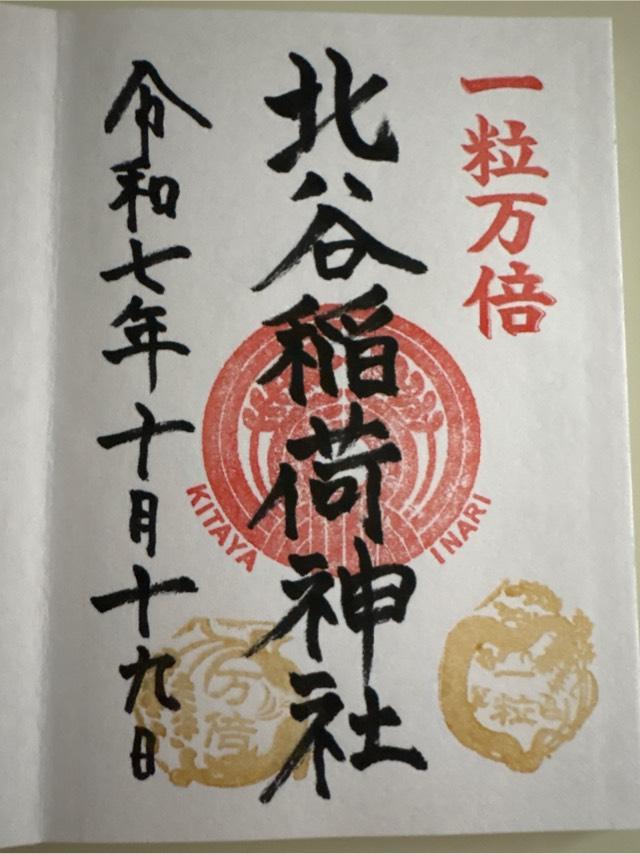 一粒万倍
北谷稲荷神社
KITAYA INARI
令和七年十月十九日
一粒
万倍